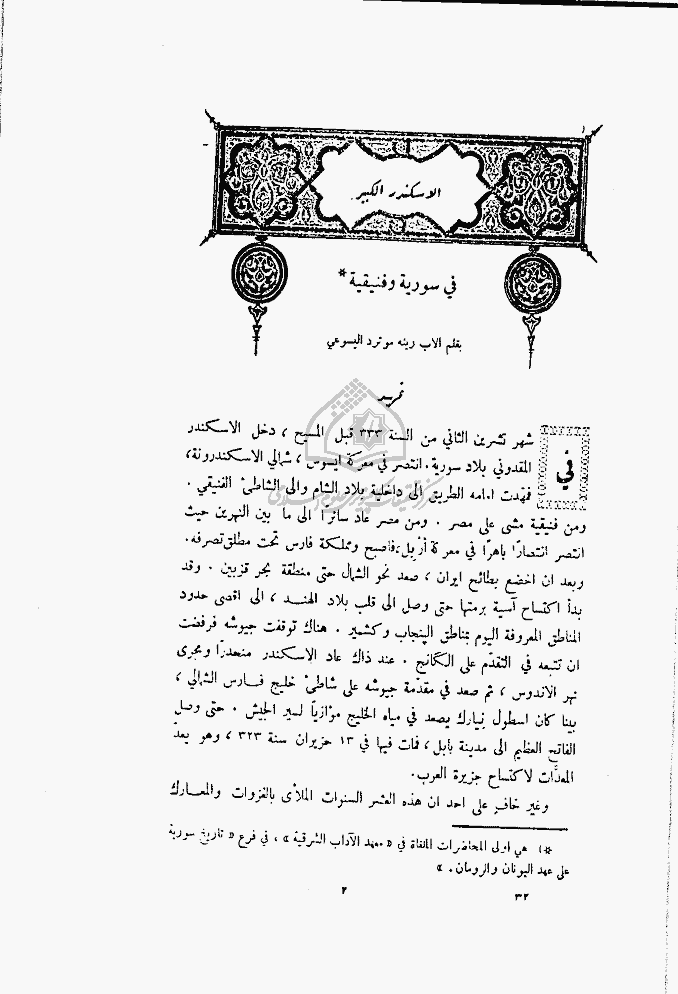 الاسكندر الكبير
في سورية وفنيقية *
بقلم الاب رينه موترد اليسوعي
تمهيد
في شهر تشرين الثاني من السنة ٣٣٣ قبل المسيح ، دخل الاسكندر
المقدوني بلاد سورية . انتصر في معركة ايسوس ، شمالي الاسكندرونة ،
فمهّدت امامه الطريق الى داخلية بلاد الشام والى الشاطئ الفنيقي .
ومن فنيقية مشى على مصر . ومن مصر عاد سائرًا الى ما بين النهرين حيث
انتصر انتصارًا باهرًا في معركة أربل ، فاصبح ومملكة فارس تحت مطلق تصرفه .
وبعد ان اخضع بطائح ايران ، صعد نحو الشمال حتى منطقة بحر قزبين . وقد
بدأ اكتساح آسية برمتها حتى وصل الى قلب بلاد الهند ، الى اقصى حدود
المناطق المعروفة اليوم بمناطق الپنجاب وكشمير . هناك توقفت جيوشه فرفضت
ان تتبعه في التقدّم على الكانج . عند ذاك عاد الاسكندر منحدرًا ومجرى
نهر الاندوس ، ثم صعد في مقدّمة جيوشه على شاطئ خليج فارس الشمالي ،
بينا كان اسطول نيارك يصعد في مياه الخليج موازيًا لسير الجيش . حتى وصل
الفاتح العظيم الى مدينة بابل ، فمات فيها في ١٣ حزيران سنة ٣٢٣ ، وهو يعدّ
المعدَّات لاكتساح جزيرة العرب .
وغير خافٍ على احد ان هذه العشر السنوات الملأى بالغزوات والمعارك
*) هي اولى المحاضرات الملقاة في « معهد الآداب الشرقية » ، في فرع « تاريخ سورية
على عهد اليونان والرومان . »
٣٢ ٢